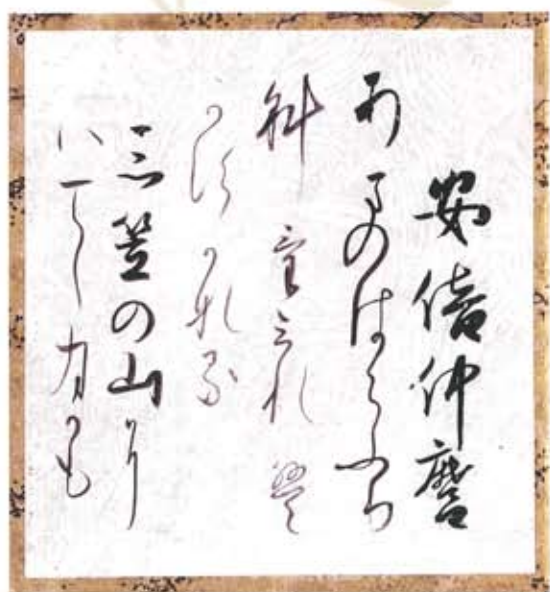 安倍仲麿
あまのはらふり
さけみれば
かすがなる
三笠の山に
いでし月かも